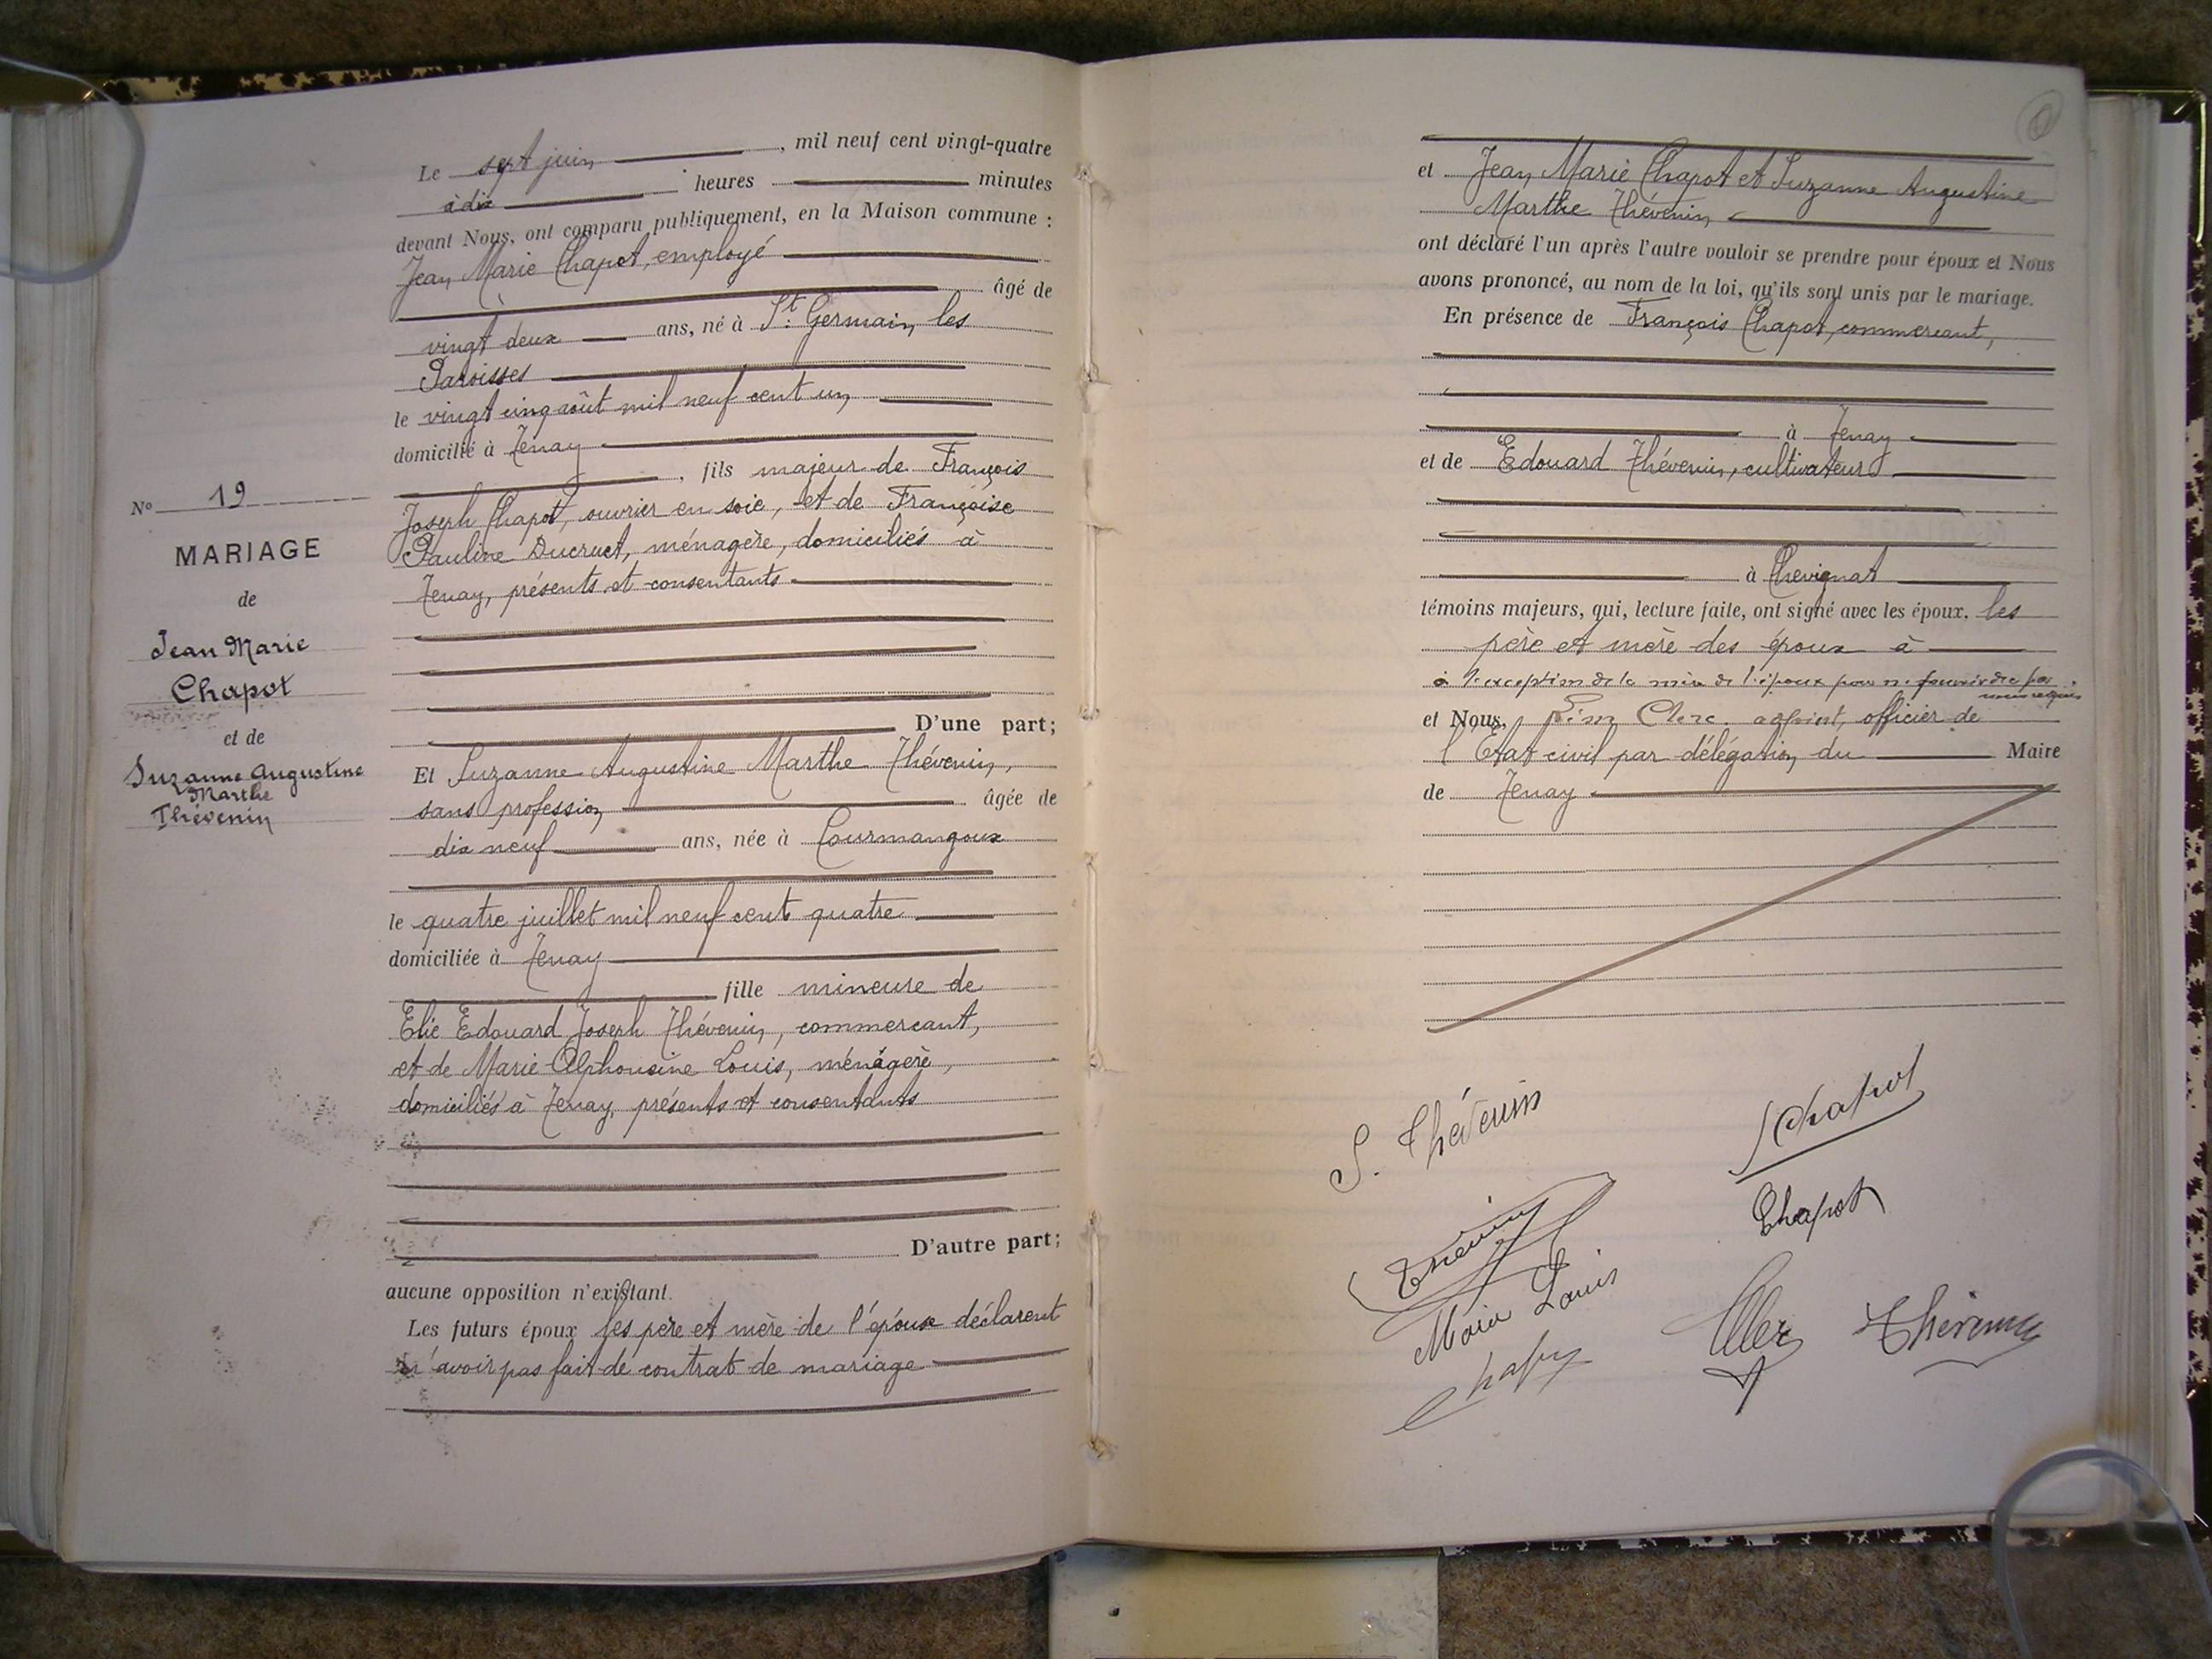 No 19
MARIAGE
de
Jean Marie
Chapot
et de
Suzanne Augustine
Marthe
Thévenin
Le sept juin, mil neuf cent vingt-quatre
à dix heures minutes
devant Nous, ont comparu publiquement, en la Maison commune :
Jean Marie Chapot, employé
âgé de
vingt deux ans, né à St. Germain les
Paroisses
le vingt cinq août mil neuf cent un
domicilié à Tenay
, fils majeur de François
Joseph Chapot, ouvrier en soie, et de Françoise
Pauline Ducruet, ménagère, domiciliés à
Tenay, présents et consentants
D'une part;
Et Suzanne Augustine Marthe Thévenin,
sans profession âgée de
dix neuf ans, née à Courmangoux
le quatre juillet mil neuf cent quatre
domiciliée à Tenay
fille mineure de
Elie Edouard Joseph Thévenin, commercant,
et de Marie Alphonsine Louis, ménagère,
domiciliés à Tenay, présents et consentants
D'autre part;
aucune opposition n'existant.
Les futurs époux les père et mère de l'épouse déclarent
n'avoir pas fait de contrat de mariage
et Jean Marie Chapot et Suzanne Augustine
Marthe Thévenin
ont déclaré l'un après l'autre vouloir se prendre pour époux et Nous
avons prononcé, au nom de la loi, qu'ils sont unis par le mariage.
En présence de François Chapot, commercant,
à Tenay
et de Edouard Thévenin, cultivateur
à Chevignat
témoins majeurs, qui, lecture faite, ont signé avec les époux. les
père et mère des époux à
à l'exception de la mère de l'époux pour ne
et Nous, Clerc. adjoint, officier de
l'Etat civil par délégation du Maire
de Tenay
S. Thévenin
Chapot
Chapot
Thévenin
Maria Louis
Chapot
Thévenin